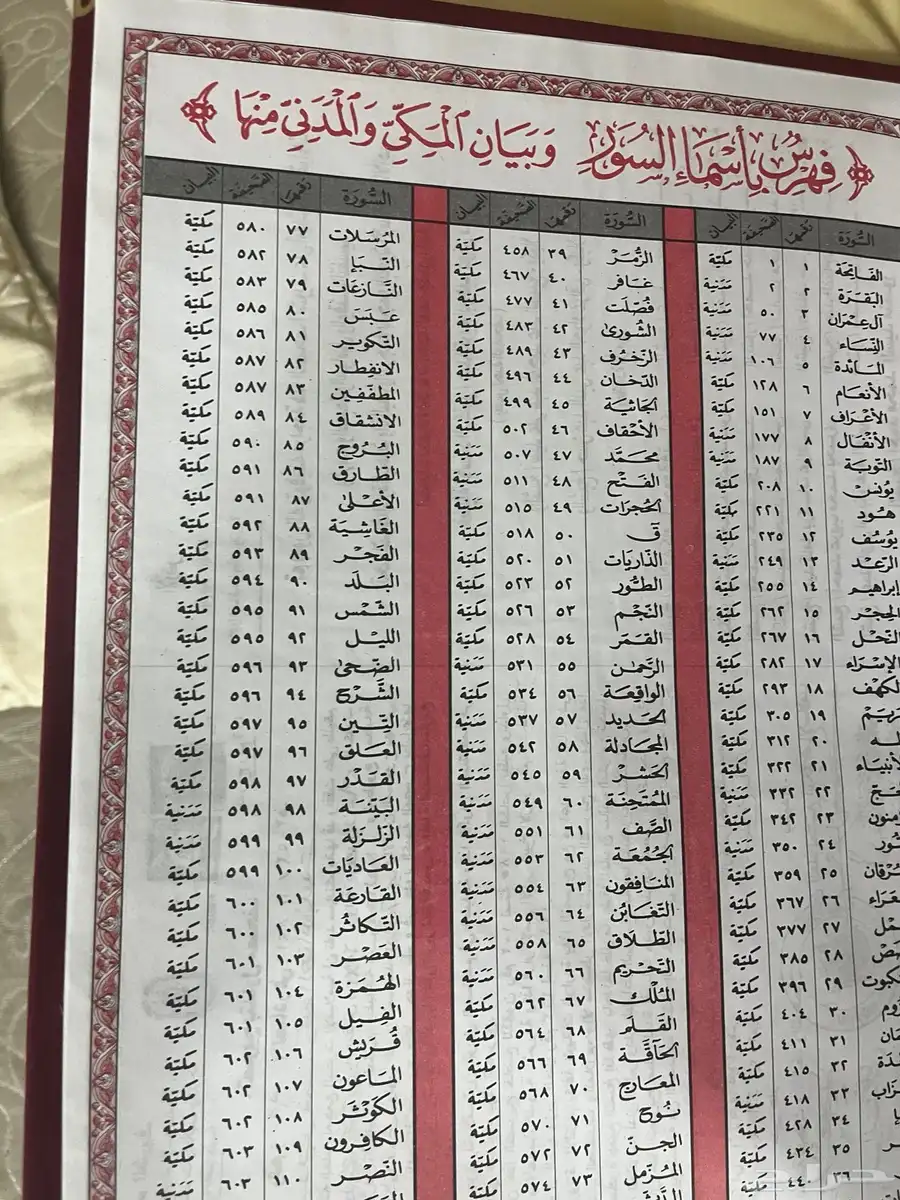 فِهْرِسٌ بِأَسْمَاءِ السُّوَرِ وَبَيَانِ الْمَكِّيِّ وَالْمَدَنِيِّ مِنْهَا
السُّورَة رقمها الصَّحيفَة البَيان
الفَاتِحَة ١ ١ مكيّة
البَقَرَة ٢ ٢ مَدَنية
آل عِمرَان ٣ ٥٠ مَدَنية
النِّسَاء ٤ ٧٧ مَدَنية
المَائدة ٥ ١٠٦ مَدَنية
الأنعَام ٦ ١٢٨ مكيّة
الأعْرَاف ٧ ١٥١ مكيّة
الأنفَال ٨ ١٧٧ مَدَنية
التّوبَة ٩ ١٨٧ مَدَنية
يُونسُ ١٠ ٢٠٨ مكيّة
هُود ١١ ٢٢١ مكيّة
يُوسُف ١٢ ٢٣٥ مكيّة
الرَّعد ١٣ ٢٤٩ مَدَنية
إبراهيم ١٤ ٢٥٥ مكيّة
الحِجر ١٥ ٢٦٢ مكيّة
النّحْل ١٦ ٢٦٧ مكيّة
الإسْرَاء ١٧ ٢٨٢ مكيّة
الكهْف ١٨ ٢٩٣ مكيّة
١٩ ٣٠٥ مكيّة
٢٠ ٣١٢ مكيّة
٢١ ٣٢٢ مكيّة
٢٢ ٣٣٢ مَدَنية
٢٣ ٣٤٢ مكيّة
٢٤ ٣٥٠ مَدَنية
٢٥ ٣٥٩ مكيّة
٢٦ ٣٦٧ مكيّة
٢٧ ٣٧٧ مكيّة
٢٨ ٣٨٥ مكيّة
٢٩ ٣٩٦ مكيّة
٣٠ ٤٠٤ مكيّة
٣١ ٤١١ مكيّة
٣٢ ٤١٥ مكيّة
٣٣ ٤١٨ مَدَنية
٣٤ ٤٢٨ مكيّة
٣٥ ٤٣٤ مكيّة
٣٦ ٤٤٠ مكيّة
السُّورَة رقمها الصَّحيفَة البَيان
الزُّمَرْ ٣٩ ٤٥٨ مكيّة
غَافر ٤٠ ٤٦٧ مكيّة
فُصّلَت ٤١ ٤٧٧ مكيّة
الشّورى ٤٢ ٤٨٣ مكيّة
الزّخرُف ٤٣ ٤٨٩ مكيّة
الدّخان ٤٤ ٤٩٦ مكيّة
الجَاثية ٤٥ ٤٩٩ مكيّة
الأحْقاف ٤٦ ٥٠٢ مكيّة
محَمَّد ٤٧ ٥٠٧ مَدَنية
الفَتْح ٤٨ ٥١١ مَدَنية
الحُجرَات ٤٩ ٥١٥ مَدَنية
قَ ٥٠ ٥١٨ مكيّة
الذّاريَات ٥١ ٥٢٠ مكيّة
الطّور ٥٢ ٥٢٣ مكيّة
النّجْم ٥٣ ٥٢٦ مكيّة
القَمَر ٥٤ ٥٢٨ مكيّة
الرَّحمٰن ٥٥ ٥٣١ مَدَنية
الواقِعَة ٥٦ ٥٣٤ مكيّة
الحَديد ٥٧ ٥٣٧ مَدَنية
المجَادلة ٥٨ ٥٤٢ مَدَنية
الحَشر ٥٩ ٥٤٥ مَدَنية
المُمتَحِنَة ٦٠ ٥٤٩ مَدَنية
الصَّف ٦١ ٥٥١ مَدَنية
الجُمُعَة ٦٢ ٥٥٣ مَدَنية
المنَافِقون ٦٣ ٥٥٤ مَدَنية
التّغَابُن ٦٤ ٥٥٦ مَدَنية
الطّلَاق ٦٥ ٥٥٨ مَدَنية
التّحْريم ٦٦ ٥٦٠ مَدَنية
المُلْك ٦٧ ٥٦٢ مكيّة
القَلَم ٦٨ ٥٦٤ مكيّة
الحَاقَّة ٦٩ ٥٦٦ مكيّة
المعَارج ٧٠ ٥٦٨ مكيّة
نُوح ٧١ ٥٧٠ مكيّة
الجِنّ ٧٢ ٥٧٢ مكيّة
المُزّمّل ٧٣ ٥٧٤ مكيّة
السُّورَة رقمها الصَّحيفَة البَيان
المُرْسَلات ٧٧ ٥٨٠ مكيّة
النَّبَإ ٧٨ ٥٨٢ مكيّة
النّازعَات ٧٩ ٥٨٣ مكيّة
عَبَسَ ٨٠ ٥٨٥ مكيّة
التّكوير ٨١ ٥٨٦ مكيّة
الانفِطار ٨٢ ٥٨٧ مكيّة
المطَفّفِين ٨٣ ٥٨٧ مكيّة
الانشقاق ٨٤ ٥٨٩ مكيّة
البُرُوج ٨٥ ٥٩٠ مكيّة
الطّارق ٨٦ ٥٩١ مكيّة
الأعْلىٰ ٨٧ ٥٩١ مكيّة
الغَاشِيَة ٨٨ ٥٩٢ مكيّة
الفَجْر ٨٩ ٥٩٣ مكيّة
البَلَد ٩٠ ٥٩٤ مكيّة
الشّمْس ٩١ ٥٩٥ مكيّة
الليْل ٩٢ ٥٩٥ مكيّة
الضّحىٰ ٩٣ ٥٩٦ مكيّة
الشَّرْح ٩٤ ٥٩٦ مكيّة
التِّين ٩٥ ٥٩٧ مكيّة
العَلق ٩٦ ٥٩٧ مكيّة
القَدْر ٩٧ ٥٩٨ مكيّة
البَيّنَة ٩٨ ٥٩٨ مَدَنية
الزّلزَلة ٩٩ ٥٩٩ مَدَنية
العَاديَات ١٠٠ ٥٩٩ مكيّة
القَارعَة ١٠١ ٦٠٠ مكيّة
التّكاثُر ١٠٢ ٦٠٠ مكيّة
العَصْر ١٠٣ ٦٠١ مكيّة
الهُمَزة ١٠٤ ٦٠١ مكيّة
الفِيل ١٠٥ ٦٠١ مكيّة
قُرَيش ١٠٦ ٦٠٢ مكيّة
الماعون ١٠٧ ٦٠٢ مكيّة
الكَوثَر ١٠٨ ٦٠٢ مكيّة
الكافِرون ١٠٩ ٦٠٣ مكيّة
النّصْر ١١٠ ٦٠٣ مَدَنية